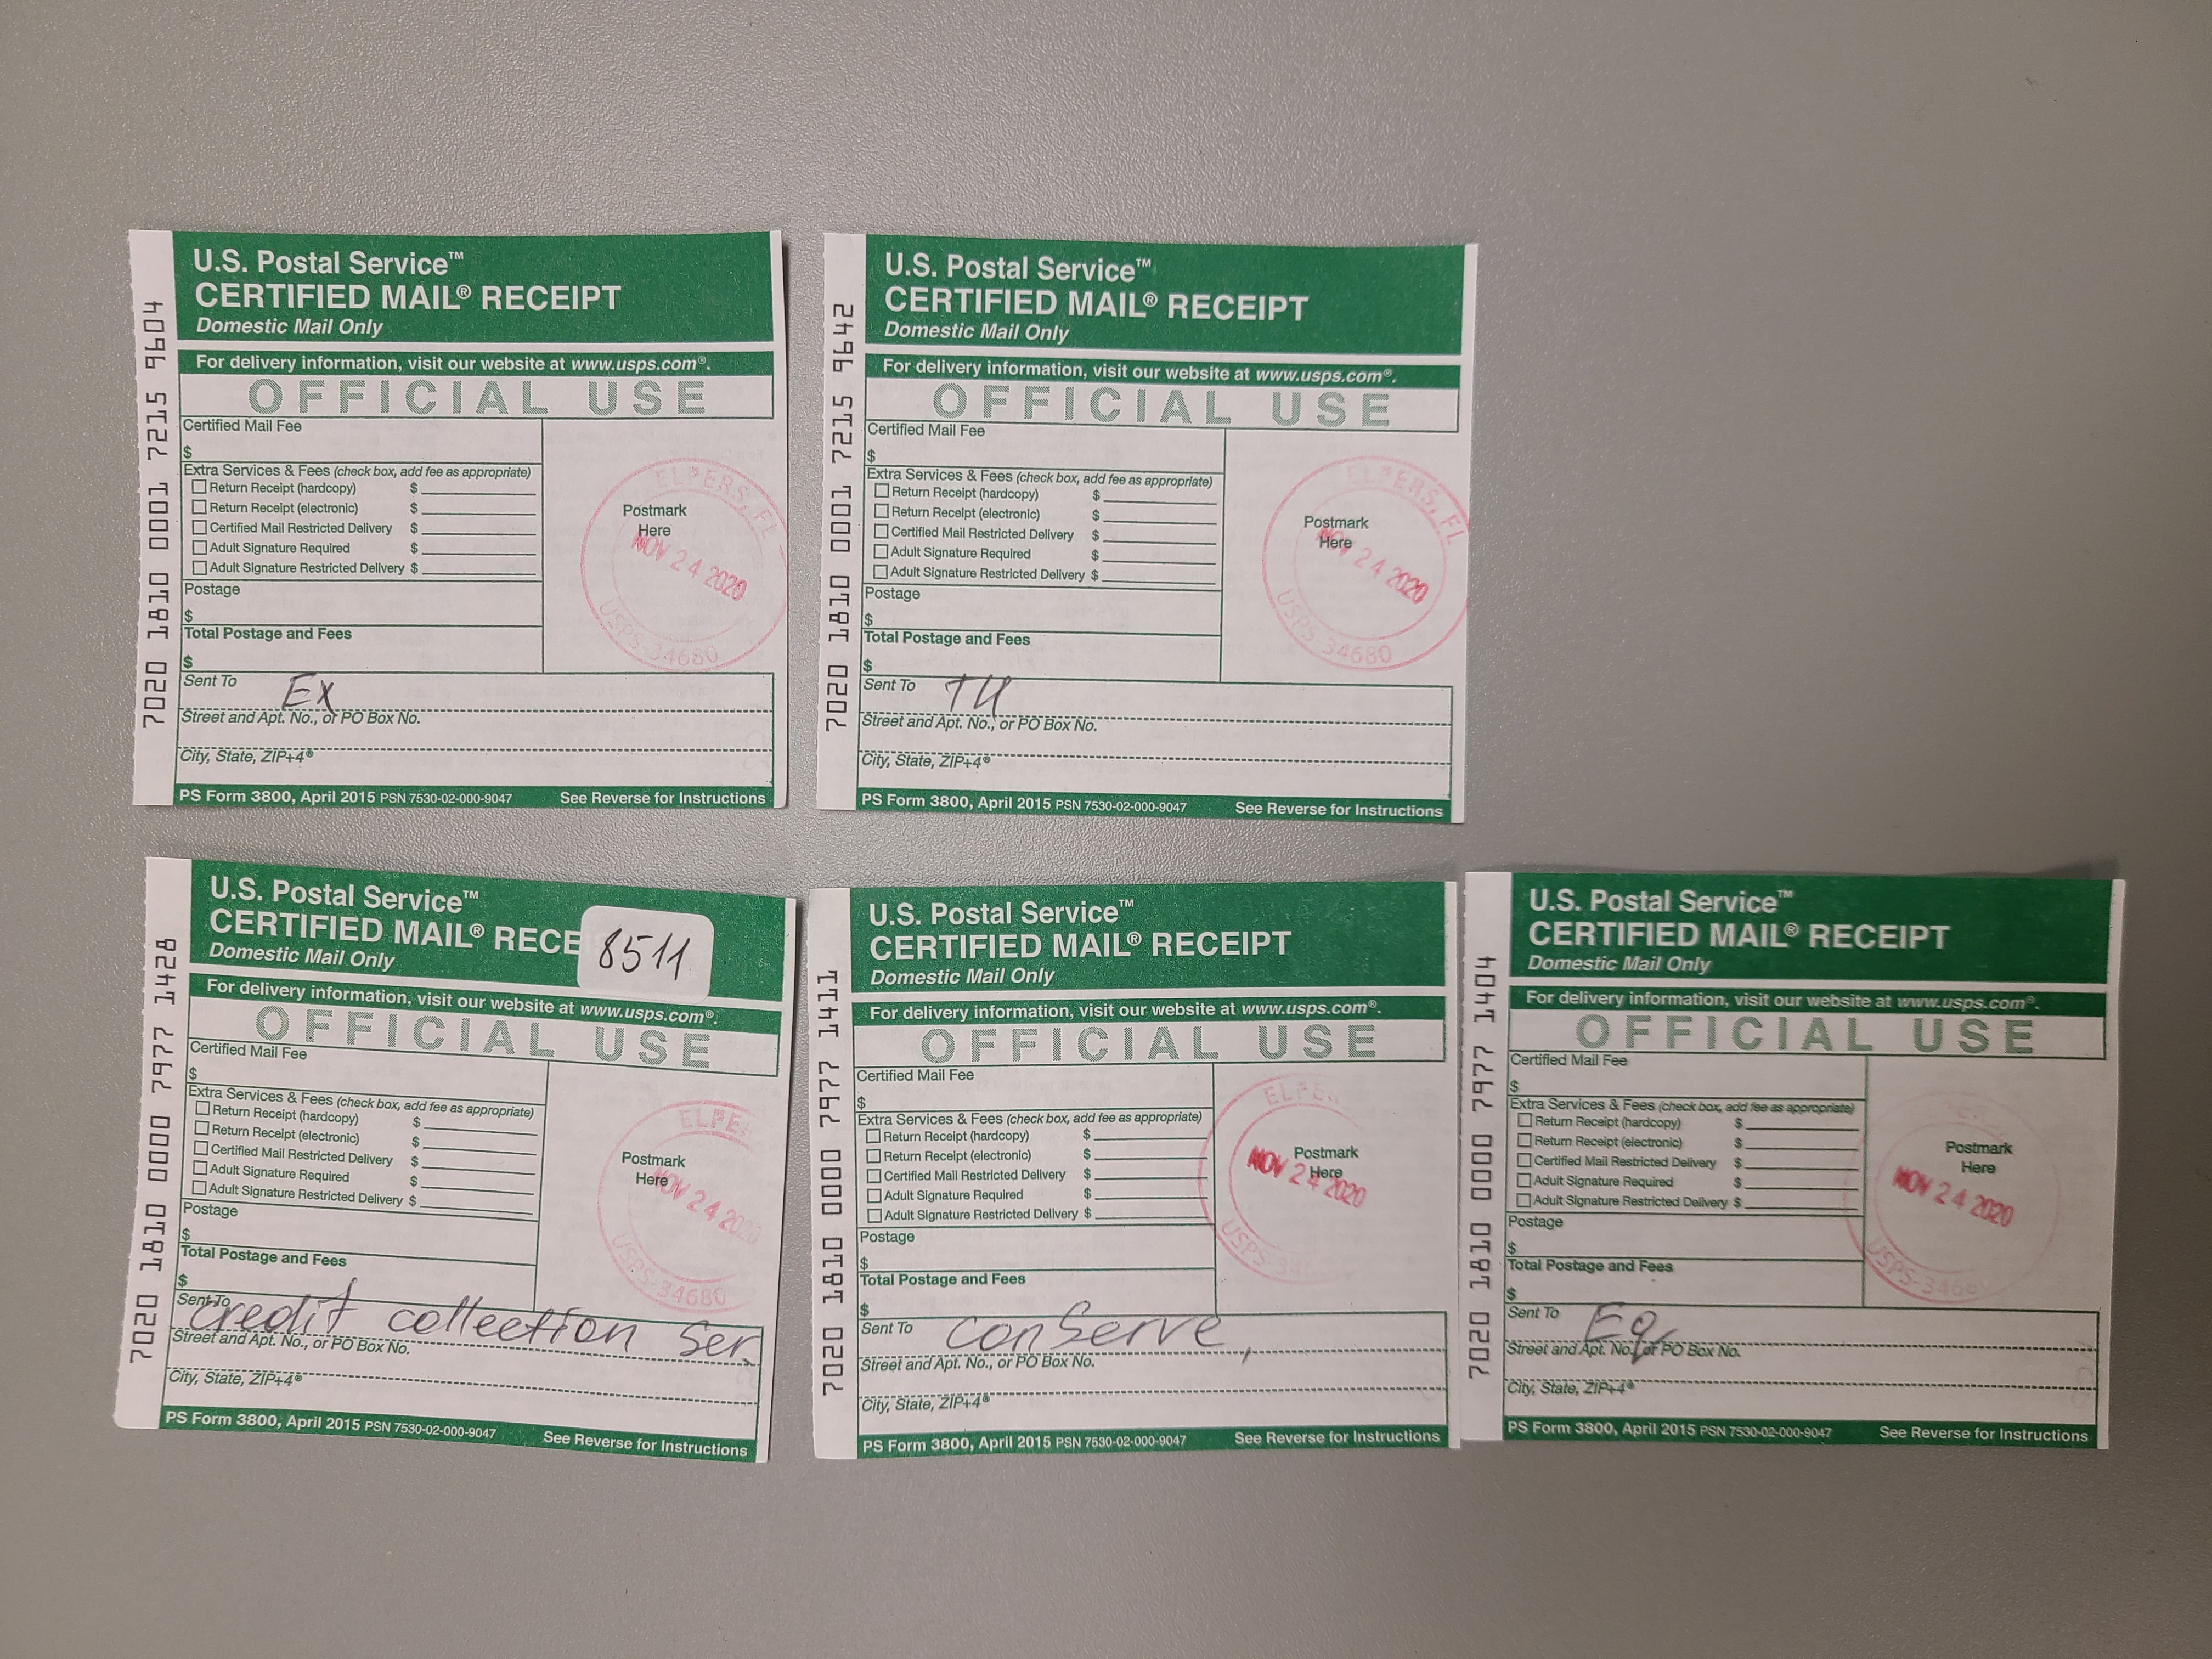 7020 1810 0000 7977 1428
U.S. Postal Service™
CERTIFIED MAIL® RECE
Domestic Mail Only
8511
For delivery information, visit our website at www.usps.com®.
OFFICIAL USE
Certified Mail Fee
$
Extra Services & Fees (check box, add fee as appropriate)
Return Receipt (hardcopy) $
Return Receipt (electronic) $
Certified Mail Restricted Delivery $
Adult Signature Required $
Adult Signature Restricted Delivery $
Postage
$
Total Postage and Fees
$
Postmark
Here
ELFE
NOV 24 20
USPS-34680
Sent To
Credit collection Ser
Street and Apt. No., or PO Box No.
City, State, ZIP+4®
PS Form 3800, April 2015 PSN 7530-02-000-9047 See Reverse for Instructions
7020 1810 0001 7215 9604
U.S. Postal Service™
CERTIFIED MAIL® RECEIPT
Domestic Mail Only
For delivery information, visit our website at www.usps.com®.
OFFICIAL USE
Certified Mail Fee
$
Extra Services & Fees (check box, add fee as appropriate)
Return Receipt (hardcopy) $
Return Receipt (electronic) $
Certified Mail Restricted Delivery $
Adult Signature Required $
Adult Signature Restricted Delivery $
Postage
$
Total Postage and Fees
$
Postmark
Here
ELFERS, FL
NOV 24 2020
USPS-34680
Sent To
EX
Street and Apt. No., or PO Box No.
City, State, ZIP+4®
PS Form 3800, April 2015 PSN 7530-02-000-9047 See Reverse for Instructions
7020 1810 0000 7977 1411
U.S. Postal Service™
CERTIFIED MAIL® RECEIPT
Domestic Mail Only
For delivery information, visit our website at www.usps.com®.
OFFICIAL USE
Certified Mail Fee
$
Extra Services & Fees (check box, add fee as appropriate)
Return Receipt (hardcopy) $
Return Receipt (electronic) $
Certified Mail Restricted Delivery $
Adult Signature Required $
Adult Signature Restricted Delivery $
Postage
$
Total Postage and Fees
$
Postmark
Here
ELFE
NOV 24 2020
USPS-34
Sent To
ConServe
Street and Apt. No., or PO Box No.
City, State, ZIP+4®
PS Form 3800, April 2015 PSN 7530-02-000-9047 See Reverse for Instructions
7020 1810 0001 7215 9642
U.S. Postal Service™
CERTIFIED MAIL® RECEIPT
Domestic Mail Only
For delivery information, visit our website at www.usps.com®.
OFFICIAL USE
Certified Mail Fee
$
Extra Services & Fees (check box, add fee as appropriate)
Return Receipt (hardcopy) $
Return Receipt (electronic) $
Certified Mail Restricted Delivery $
Adult Signature Required $
Adult Signature Restricted Delivery $
Postage
$
Total Postage and Fees
$
Postmark
Here
ELFERS, FL
NOV 24 2020
USPS 34680
Sent To
TU
Street and Apt. No., or PO Box No.
City, State, ZIP+4®
PS Form 3800, April 2015 PSN 7530-02-000-9047 See Reverse for Instructions
7020 1810 0000 7977 1404
U.S. Postal Service™
CERTIFIED MAIL® RECEIPT
Domestic Mail Only
For delivery information, visit our website at www.usps.com®.
OFFICIAL USE
Certified Mail Fee
$
Extra Services & Fees (check box, add fee as appropriate)
Return Receipt (hardcopy) $
Return Receipt (electronic) $
Certified Mail Restricted Delivery $
Adult Signature Required $
Adult Signature Restricted Delivery $
Postage
$
Total Postage and Fees
$
Postmark
Here
NOV 24 2020
USPS-3468
Sent To
Eq
Street and Apt. No., or PO Box No.
City, State, ZIP+4®
PS Form 3800, April 2015 PSN 7530-02-000-9047 See Reverse for Instructions